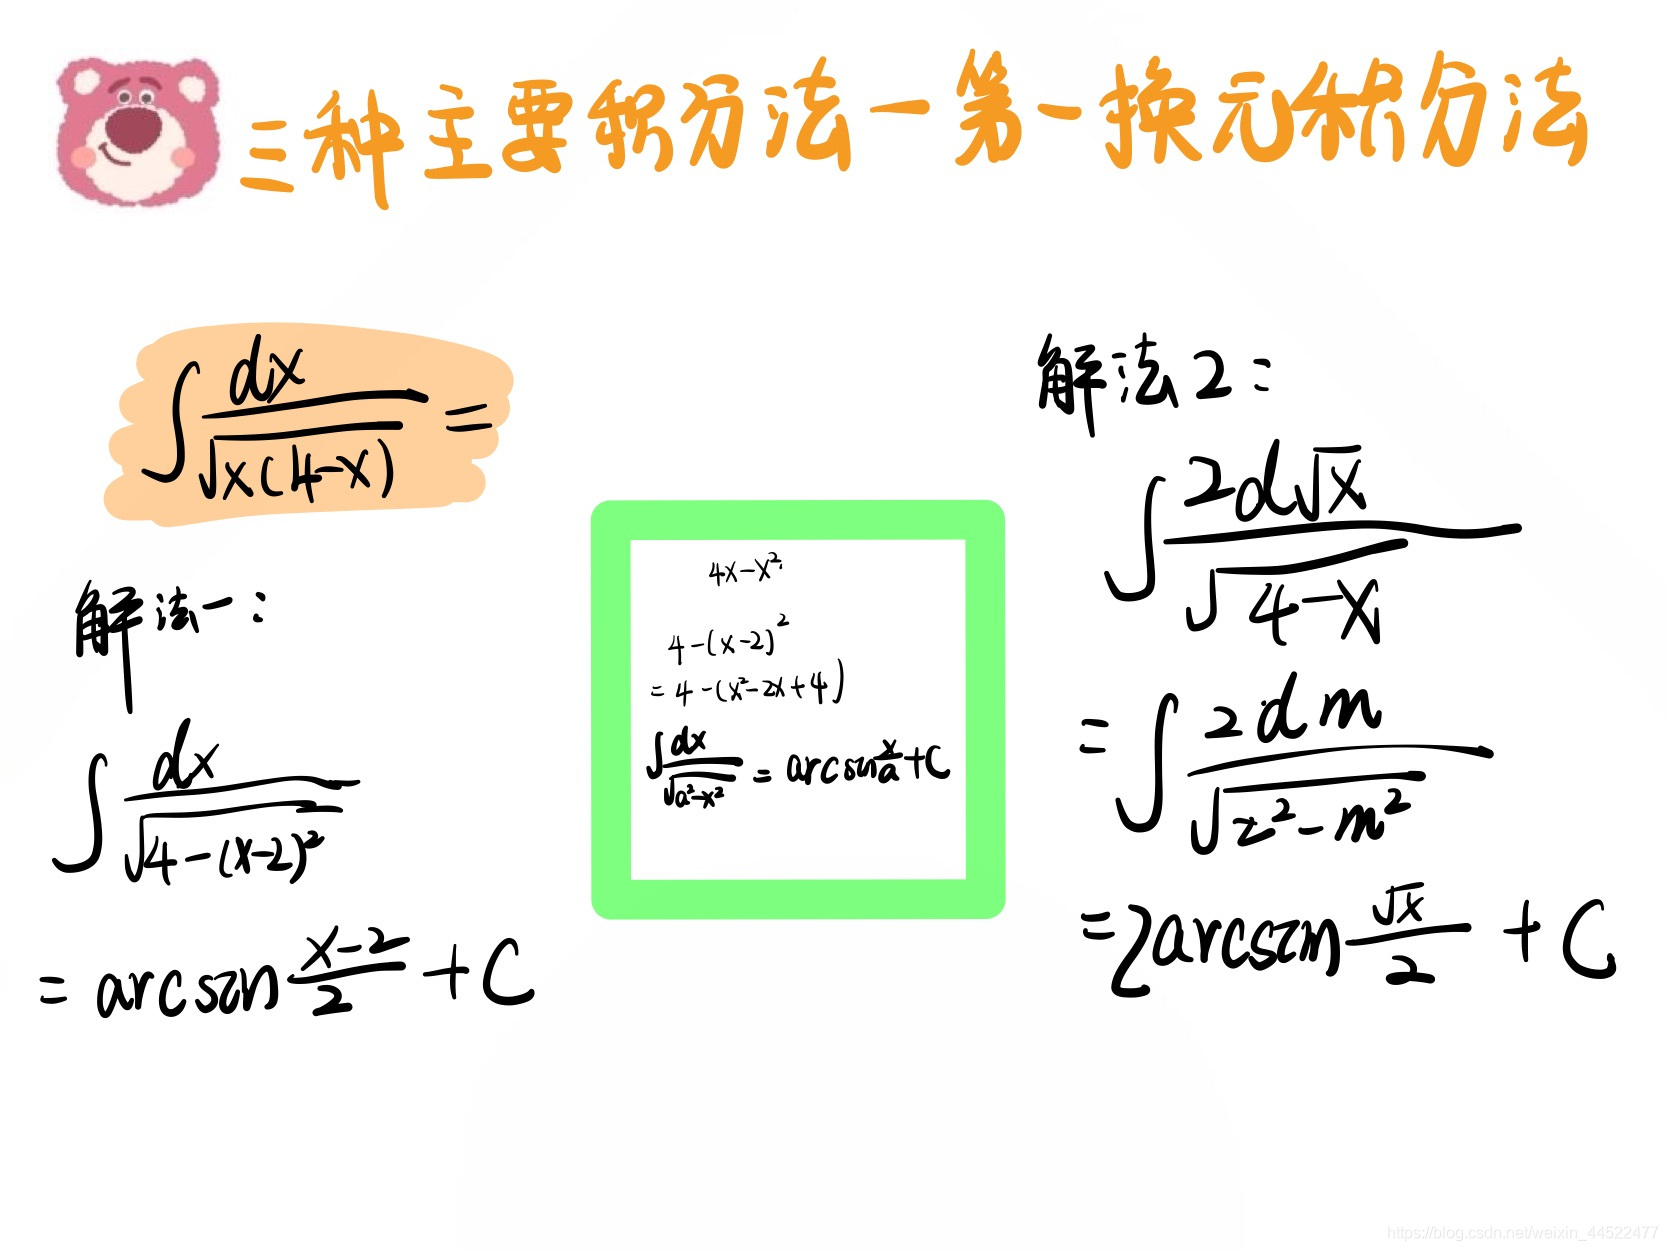 三种主要积分法一第一换元积分法
∫dx/√x(4-x) =
解法一:
∫dx/√4-(x-2)²
= arcsin (x-2)/2 + C
4x-x²
4-(x-2)²
= 4-(x²-2x+4)
∫dx/√a²-x² = arcsin x/a + C
解法2:
∫2d√x/√4-x
= ∫2dm/√2²-m²
= 2arcsin √x/2 + C
https://blog.csdn.net/weixin_44522477